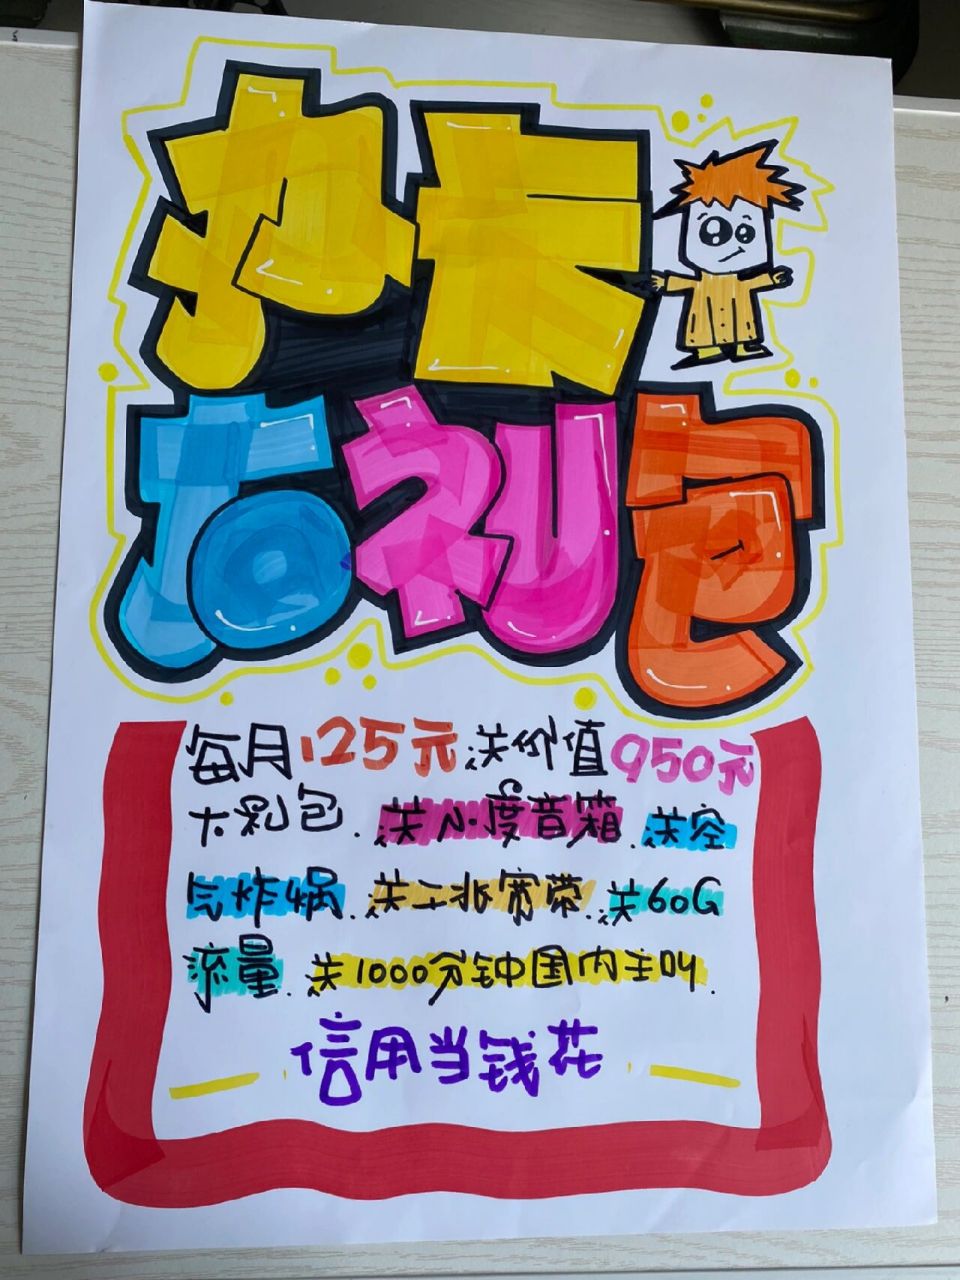 右礼包
每月125元送价值950元
大礼包.送小度音箱.送空
气炸锅.送千兆宽带.送60G
流量.送1000分钟国内主叫.
信用当钱花